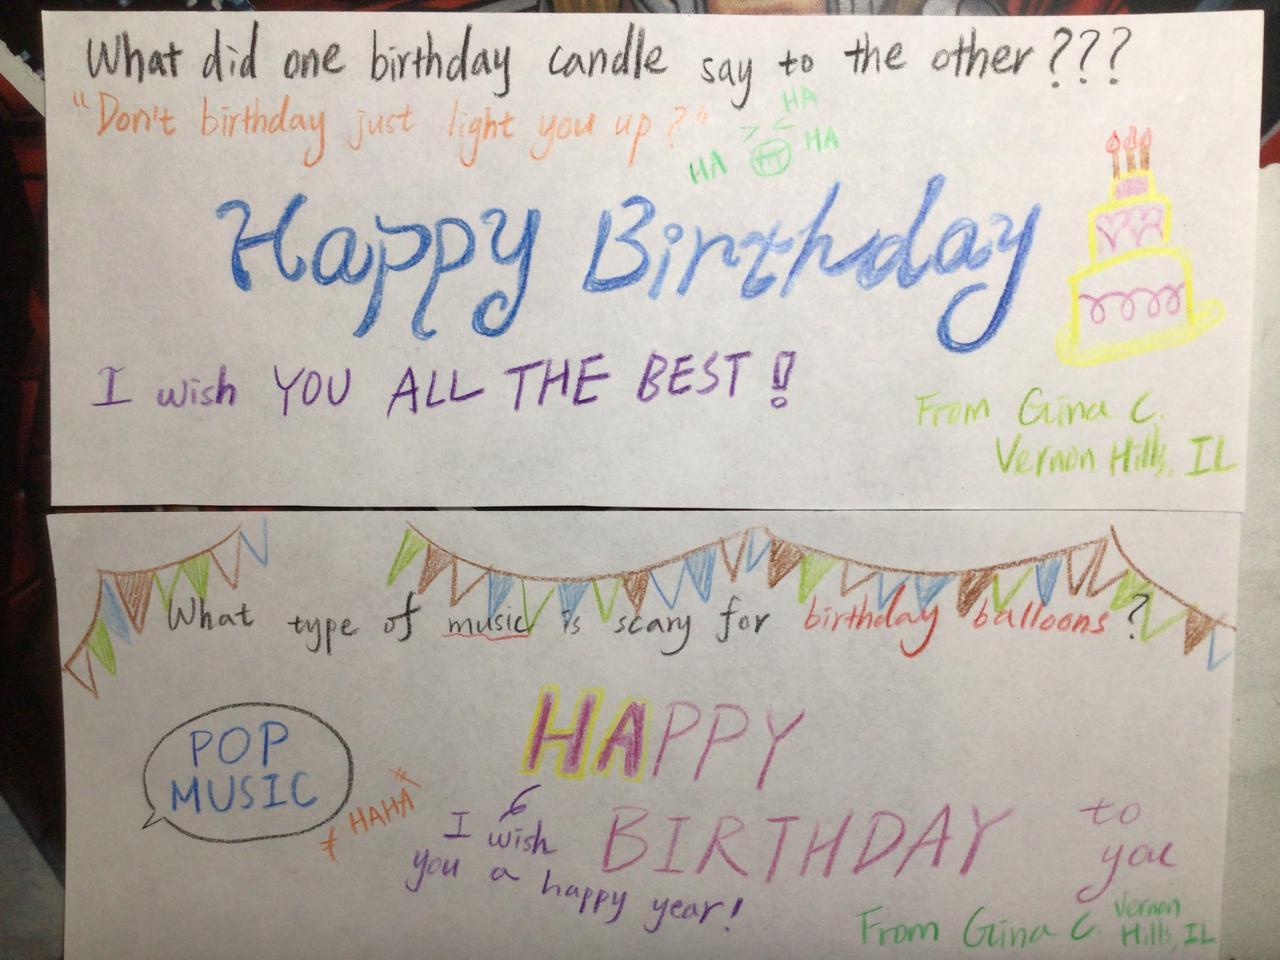 What did one birthday candle say to the other???
"Don't birthday just light you up?"
HA
HA
HA
Happy Birthday
I wish YOU ALL THE BEST!
From Gina C.
Vernon Hills, IL
What type of music is scary for birthday balloons?
POP
MUSIC
HAHA
HAPPY
BIRTHDAY
to
you
I wish
you a happy year!
From Gina C. Vernon
Hills, IL